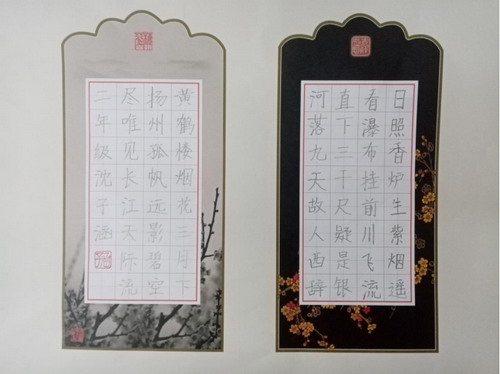 日照香炉生紫烟遥
看瀑布挂前川飞流
直下三千尺疑是银
河落九天故人西辞
黄鹤楼烟花三月下
扬州孤帆远影碧空
尽唯见长江天际流
二年级沈子涵